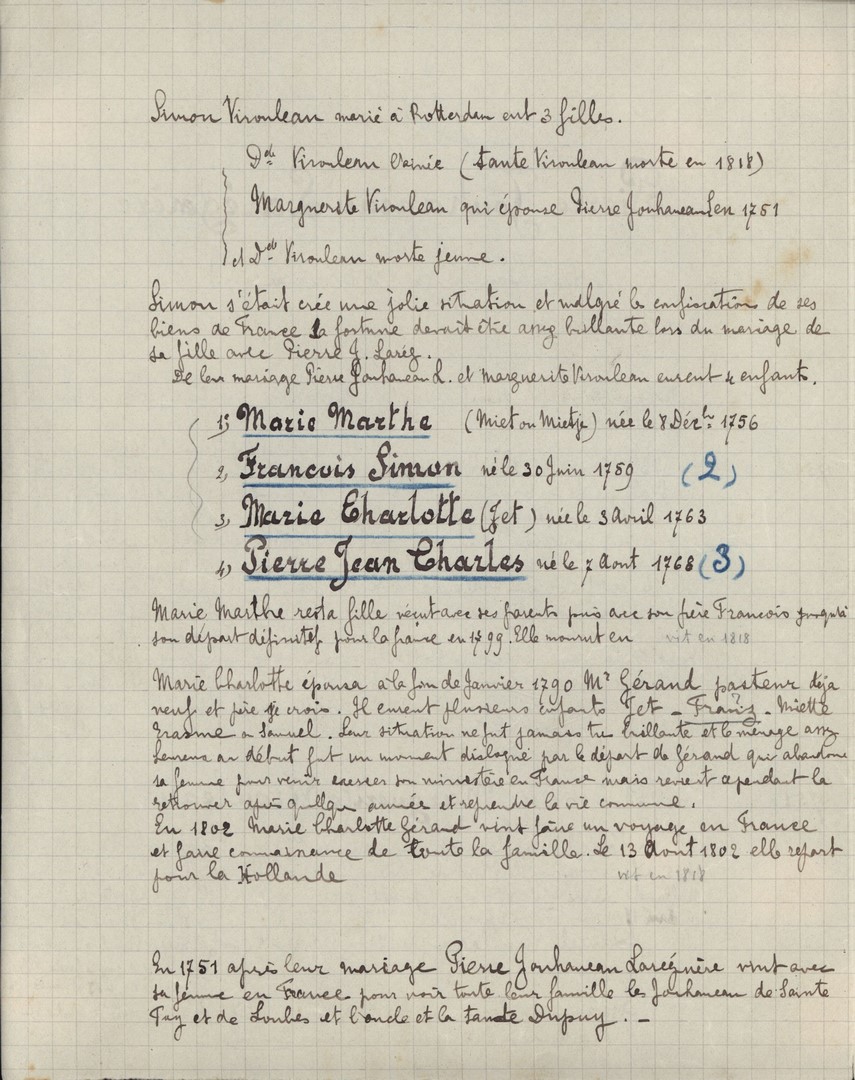 Simon Virouleau marié à Rotterdam eut 3 filles.
Delle Virouleau l'ainée (tante Virouleau morte en 1818)
Marguerite Virouleau qui épouse Pierre Jouhaneau L en 1751
et Delle Virouleau morte jeune.
Simon s'était crée une jolie situation et malgré la confiscation de ses
biens de France la fortune devait être assez brillante lors du mariage de
sa fille avec Pierre J. Larég.
De leur mariage Pierre Jouhaneau L. et Marguerite Virouleau eurent 4 enfants.
1) Marie Marthe (Miet ou Mietje) née le 8 Décbre 1756
2) Francois Simon né le 30 Juin 1759 (2)
3) Marie Charlotte (Jet) née le 3 Avril 1763
4) Pierre Jean Charles né le 7 Aout 1768 (3)
Marie Marthe resta fille vécut avec ses parents puis avec son frère Francois jusqu'à
son départ définitif pour la france en 1799. Elle mourut en vit en 1818
Marie Charlotte épousa a la fin de Janvier 1790 Mr Gérand pasteur déja
veuf et père je crois. Il eurent plusieurs enfants Jet - Franç? - Miette
Erasme a Samuel. Leur situation ne fut jamais très brillante et le ménage assez
heureux au début fut un moment disloqué par le départ de Gérand qui abandonne
sa femme pour venir exercer son ministère en France mais revient cependant la
retrouver après quelque année et reprendre la vie commune.
En 1802 Marie Charlotte Gérand vint faire un voyage en France
et faire connaissance de toute la famille. Le 13 Aout 1802 elle repart
pour la Hollande vit en 1818
En 1751 après leur mariage Pierre Jouhaneau Larégnère vint avec
sa femme en France pour voir toute leur famille les Jouhaneau de Sainte
Foy et de Loubes et l'oncle et la tante Dupuy. -